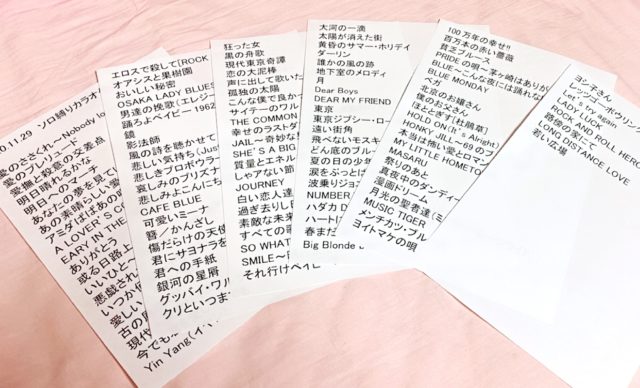 0.1.29 ソロ縛りカラオ
愛のささくれ～Nobody lo
愛のプレリュード
愛撫と殺意の交差点
明日晴れるかな
明日へのマーチ
あなたの夢を見
あの素晴らしい愛
アミダばばあの
A LOVER'S CO
EARY IN THE
ありがとう
或る日路上
いいひと～
悪戯され
いつか
愛しい
古の風
現代
今でも
Yin Yang(イ
エロスで殺して[ROCK
オアシスと果樹園
おいしい秘密
OSAKA LADY BLUES
男達の挽歌(エレジー
踊ろよベイビー1962
鏡
影法師
風の詩を聴かせて
悲しい気持ち(Just
悲しきプロボウラー
哀しみのプリズナ
悲しみよこんにち
CAFE BLUE
可愛いミーナ
簪／かんざし
傷だらけの天使
君にサヨナラを
君への手紙
銀河の星屑
グッバイ・ワル
クリといつま
狂った女
黒の舟歌
現代東京奇譚
恋の大泥棒
声に出して歌いた
孤独の太陽
こんな僕で良かっ
サイテーのワル
THE COMMON
幸せのラストダ
JAIL～奇妙な
SHE'S A BIG
質量とエネル
しゃアない節
JOURNEY
白い恋人達
過ぎ去りし日
素敵な未来
すべての歌
SO WHAT
SMILE～
それ行けベイ
大河の一滴
太陽が消えた街
黄昏のサマー・ホリデイ
ダーリン
誰かの風の跡
地下室のメロディ
月
Dear Boys
DEAR MY FRIEND
東京
東京ジプシー・ロー
遠い街角
飛べないモスキ
どん底のブルー
夏の日の少年
涙をぶっとば
波乗りジョン
NUMBER
ハダカ D
ハートに
春まだ
Big Blonde
100万年の幸せ!!
百万本の赤い薔薇
貧乏ブルース
PRIDEの唄～茅ヶ崎はありが
ブルー～こんな夜には踊れ
BLUE MONDAY
方
北京のお嬢さん
僕のお父さん
ほととぎす[杜鵑草]
HOLD ON(It's Alright)
本当は怖い愛とロマン
HONKY JILL～69のブ
MY LITTLE HOMETO
MASARU
祭りのあと
真夜中のダンディー
漫画ドリーム
月光の聖者達(ミ
MUSIC TIGER
メンチカツ・ブル
ヨイトマケの唄
ヨシ子さん
レッツゴー・ボウリン
Let's
LADY LUCK
ROCK AND ROLL HERO
路傍の家にて
LONG DISTANCE LOVE
若い広場